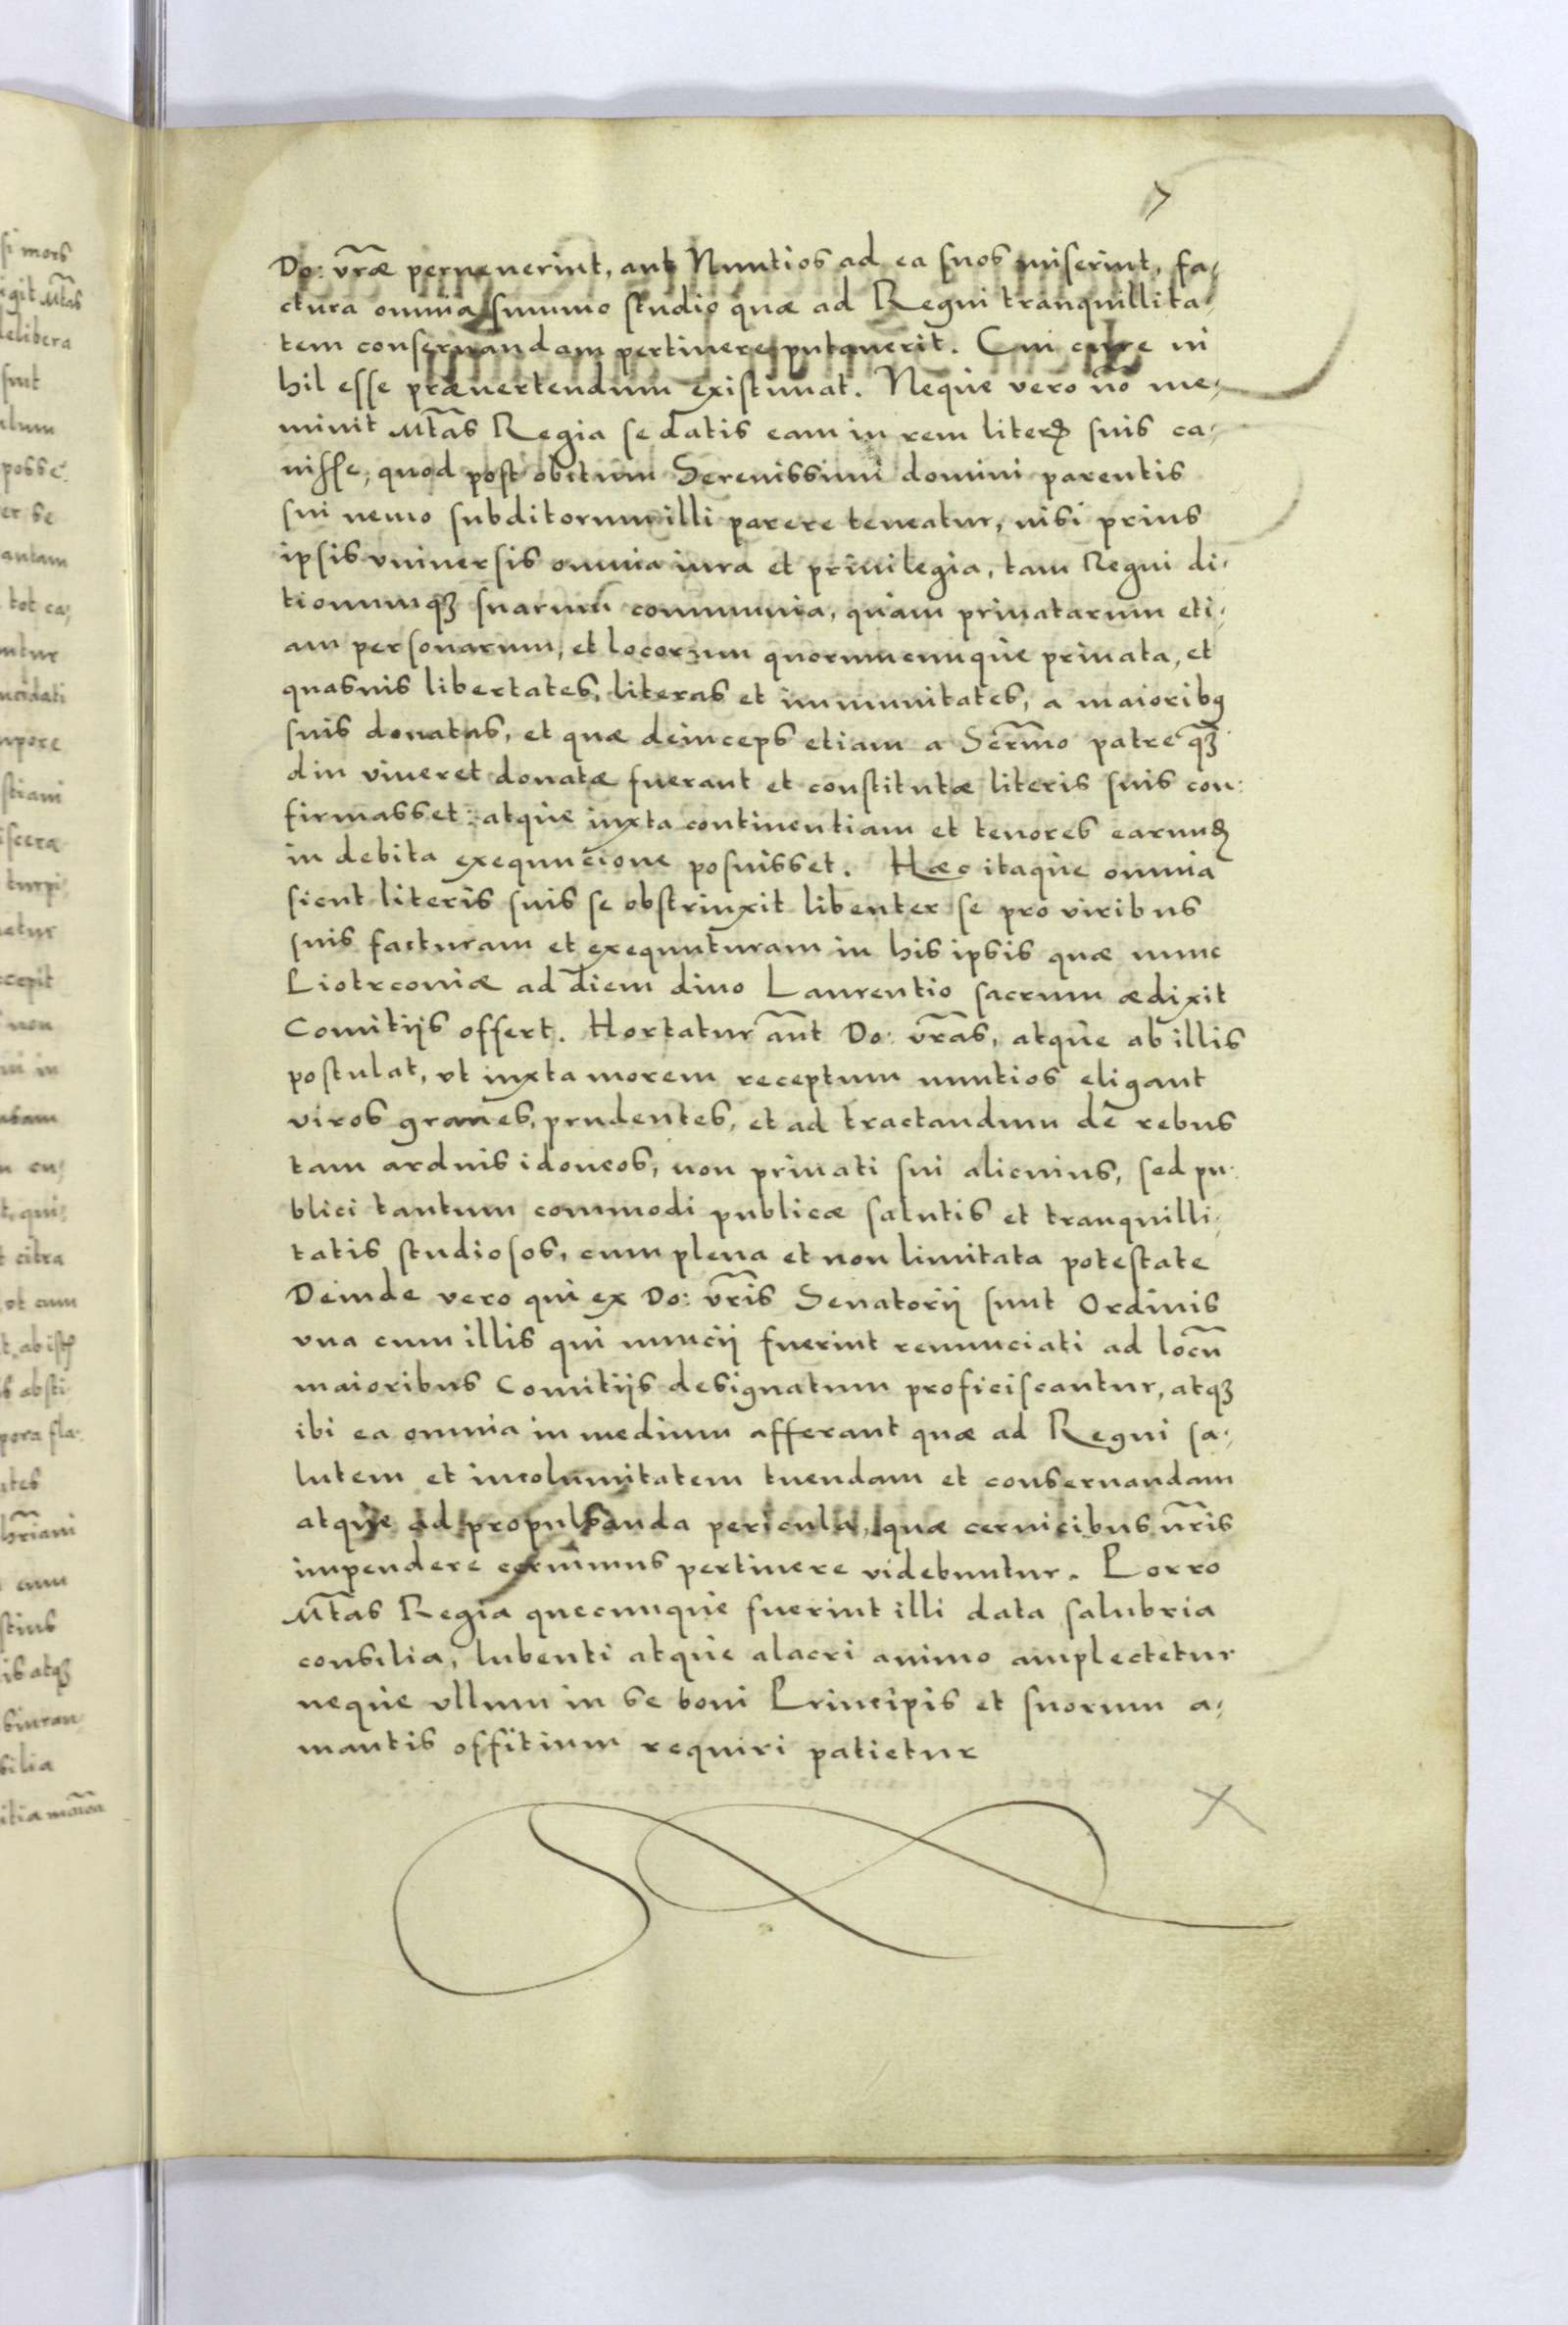 7
Do: vr̃æ peruenerint, aut Nuntios ad ea suos miserint, fa,
ctura omnia summo studio quæ ad Regni tranquillita,
tem conseruandam pertinere putauerit. Cui curæ ni
hil esse præuertendum existimat. Neque vero nõ me,
minit Mt̃as Regia se datis eam in rem literꝭ suis ca,
uisse, quod post obitum Serenissimi domini parentis
sui nemo subditorum illi parere teneatur, nisi prius
ipsis vniuersis omnia iura et priuilegia, tam Regni di,
tionumqꝫ suarum communia, quam priuatarum eti,
am personarum, et locorum quorumcunque priuata, et
quasuis libertates, literas et immunitates, a maioribꝯ
suis donatas, et quæ deinceps etiam a Serm̃o patre qꝫ
diu viueret donatæ fuerant et constitutæ literis suis con:
firmasset: atque iuxta continentiam et tenores earundꝭ
in debita exequucione posuisset. Hæc itaque omnia
sicut literis suis se obstrinxit libenter se pro viribus
suis facturam et exequuturam in his ipsis quæ nunc
Piotrcouiæ ad diem diuo Laurentio sacrum ædixit
Comitijs offert. Hortatur aũt Do: vr̃as, atque ab illis
postulat, vt iuxta morem receptum nuntios eligant
viros graues, prudentes, et ad tractandum de rebus
tam arduis idoneos, non priuati sui alicuius, sed pu:
blici tantum commodi publicæ salutis et tranquilli,
tatis studiosos, cum plena et non limitata potestate
Deinde vero qui ex Do: vr̃is Senatorij sunt Ordinis
vna cum illis qui nuncij fuerint renunciati ad locũ
maioribus Comitijs designatum proficiscantur, atqꝫ
ibi ea omnia in medium afferant quæ ad Regni sa,
lutem et incolumitatem tuendam et conseruandam
atque ad propulsanda pericula, quæ ceruicibus nr̃is
impendere cernimus pertinere videbuntur. Porro
Mt̃as Regia quecunque fuerint illi data salubria
consilia, lubenti atque alacri animo amplectetur
neque vllum in se boni Principis et suorum a,
mantis offitium requiri patietur